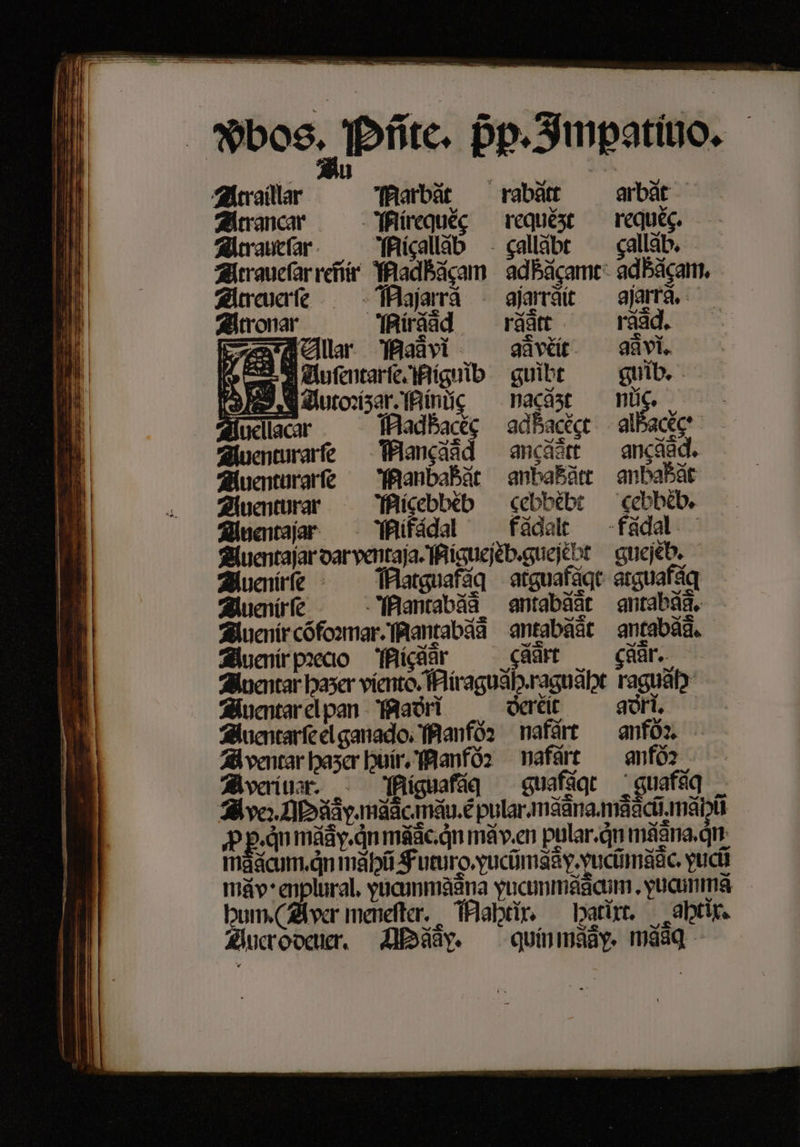 Vbos. Pñte. p̄p. Impatiuo.
Au
Atraillar Narbăt rabătt arbăt
Atrancar Nirequĕç requĕzt requĕç.
Atrauesar Niçallăb çallăbt çallăb.
Atrauesar reñir Nadhăçam adhăçamt adhăçam.
Atreuerse Najarră ajarrăit ajarră.
Atronar Nirăăd răătt răăd.
Aullar Naăvĭ aăvĕit aăvĭ.
Ausentarse. Niguĭb guibt guib.
Autorizar. Ninŭç naçăzt nŭç.
Auellacar Nadhacĕç adhacĕçt alhacĕç
Auenturarse Nançăăd ançăătt ançăăd.
Auenturarse Nanbahăt anbahătt anbahăt
Auenturar Niçebbĕb çebbĕbt çebbĕb.
Auentajar Nifădal fădalt fădal
Auentajar dar ventaja. Niguejĕb. guejĕbt guejĕb.
Auenirse Natguafăq atguafăqt atguafăq
Auenirse Nantabăă antabăăt antabăă.
Auenir cõformar. Nantabăă antabăăt antabăă.
Auenir precio Niçăăr çăărt çăăr.
Auentar hazer viento. Niraguăh. raguăht raguăh
Auentar el pan Nadrĭ derĕit adrĭ.
Auentarse el ganado. Nanfŏr nafărt anfŏr.
Aventar hazer huir. Nanfŏr nafărt anfŏr
Averiuar. Niguafăq guafăqt guafăq
Aver. Măăy. măăc. mău. é pular. măăna. măăcũ. măhũ
p̱ p̱. q̃n măăy. q̃n măăc. q̃n măv. en pular. q̃n măăna. q̃n
măăcum. q̃n măhũ Futuro. yucũmăăy. yucũmăăc. yucũ
măv enplural. yucunmăăna yucunmăăcum. yucunmă
hum. (Aver menester. Nahtĭx. hatixt. ahtĭx.
Auerodeuer. Măăy. quinmăăy. măăq